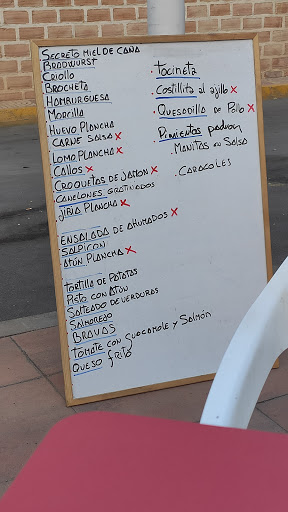 SECRETO MIEL DE CANA
BRADWURST
CRIOLLO
BROCHETA
HAMBURGUESA
MORCILLA
HUEVO PLANCHA
CARNE SALSA X
LOMO PLANCHA X
CALLOS X
CROQUETAS DE JAMON X
CANELONES GRATINADOS
JIBIA PLANCHA X
ENSALADA DE AHUMADOS X
SALPICON
ATÚN PLANCHA X
TORTILLA DE PATATAS
PISTO CON ATÚN
SALTEADO DE VERDURAS
SALMOREJO
BRAVAS
TOMATE CON GUACAMOLE Y SALMÓN
QUESO FRITO
. TOCINETA
. COSTILLITA AL AJILLO X
. QUESADILLA DE POLLO X
. PIMIENTOS PADRON
. MANITAS EN SALSA
. CARACOLES